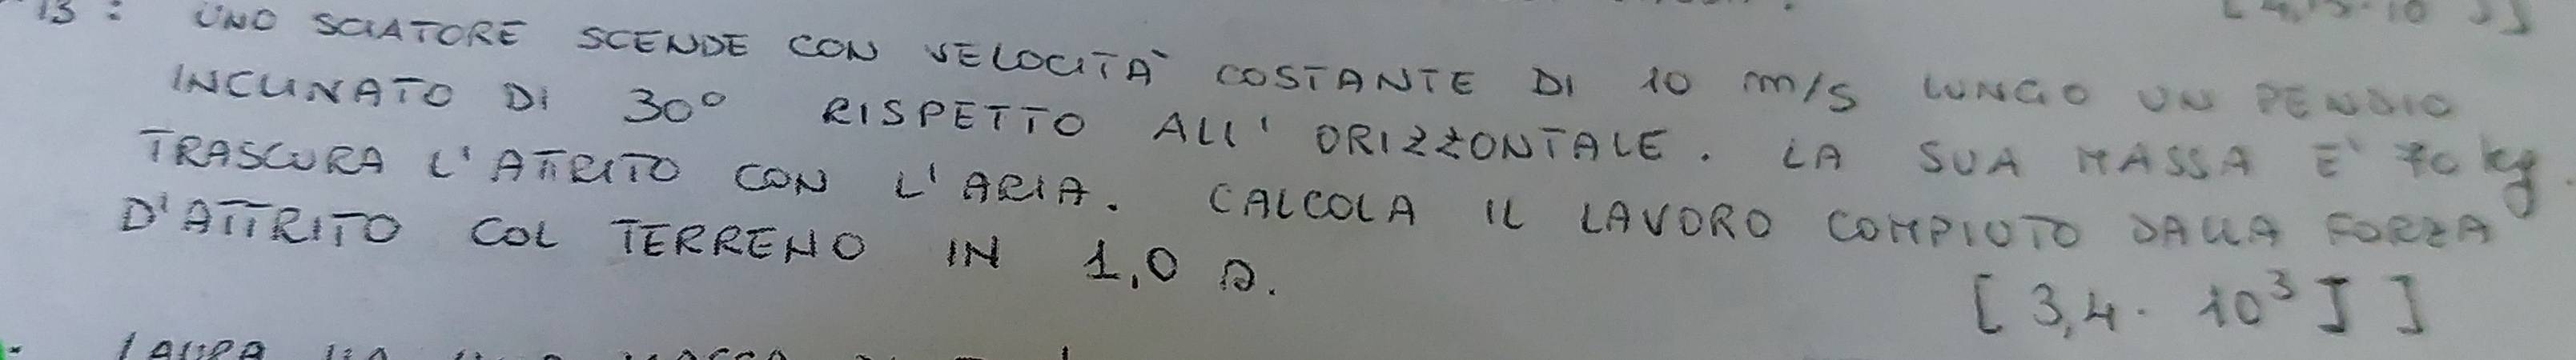 13: UNO SCIATORE SCENDE CON VELOCITÀ COSTANTE DI 10 m/s LUNGO UN PENDIO
INCLINATO DI 30° RISPETTO ALL' ORIZZONTALE. LA SUA MASSA E' 70 kg.
TRASCURA L'ATTRITO CON L'ARIA. CALCOLA IL LAVORO COMPIUTO DALLA FORZA
D'ATTRITO COL TERRENO IN 1,0 s.
[3,4 · 10³ J]